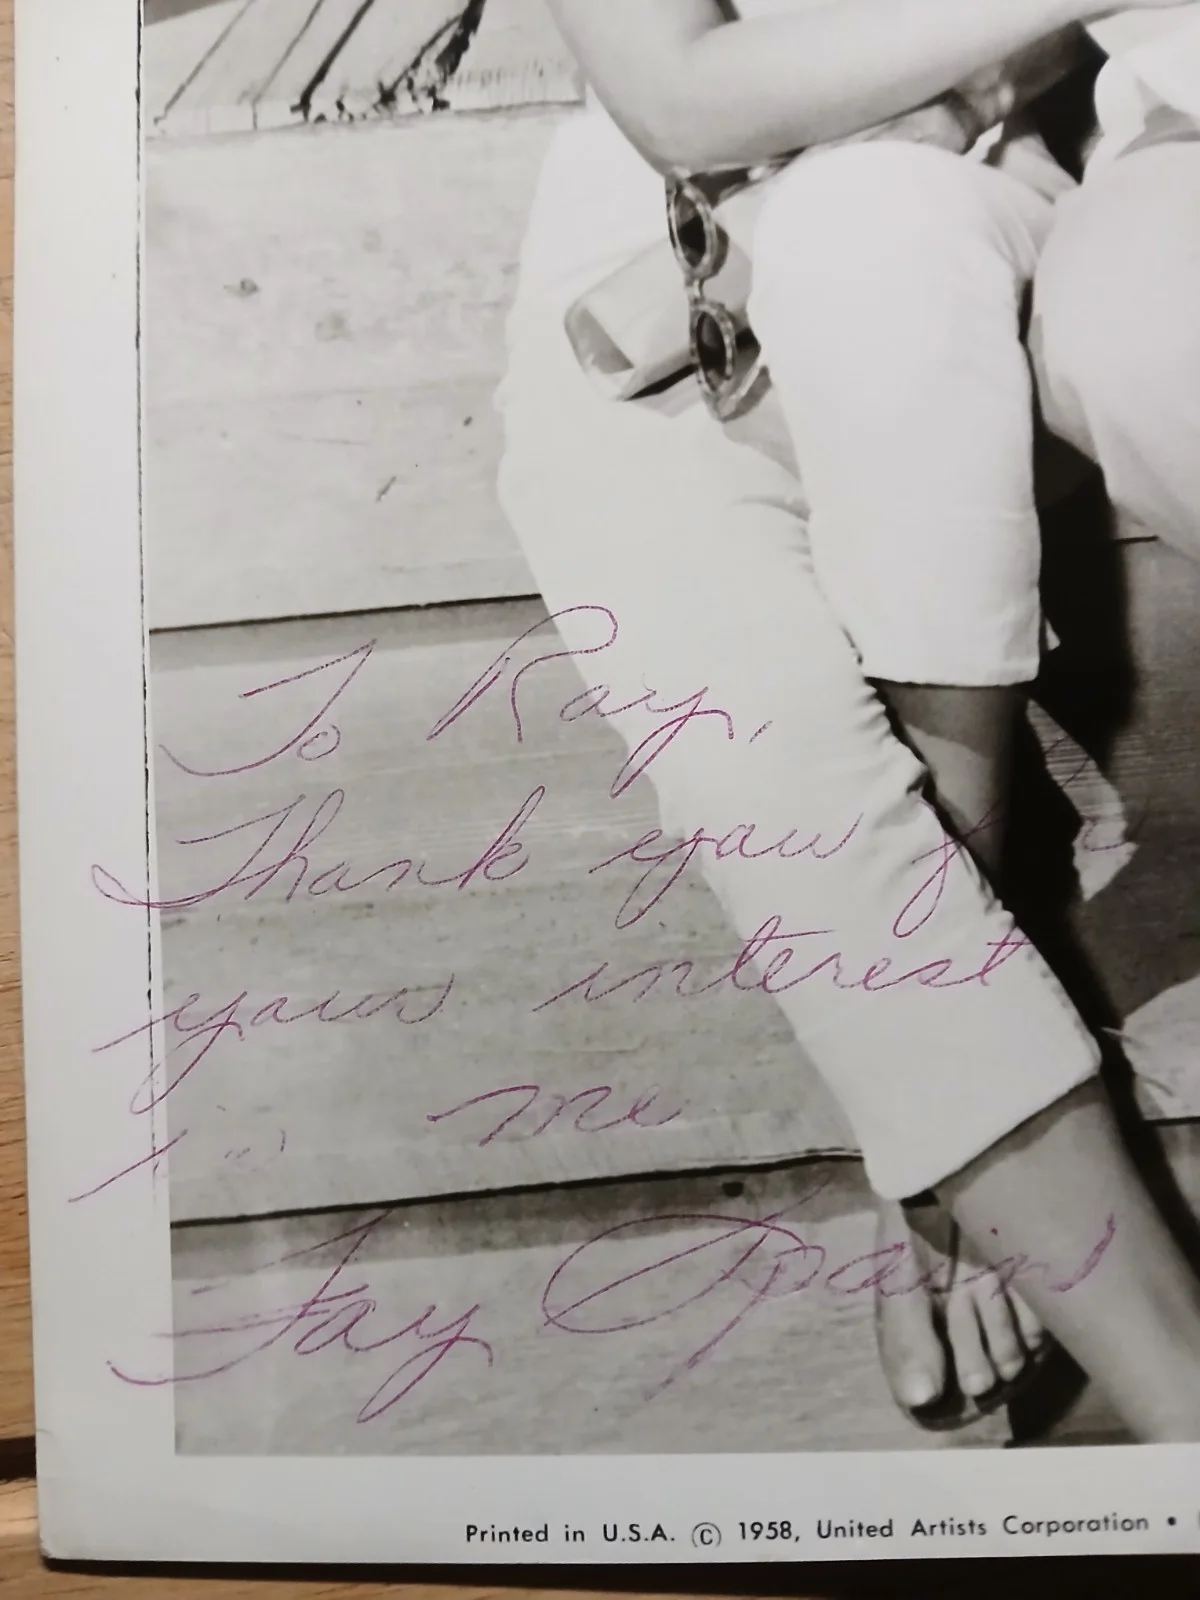 To Ray,
Thank you for
your interest
in me
Fay Spain
Printed in U.S.A. © 1958, United Artists Corporation •